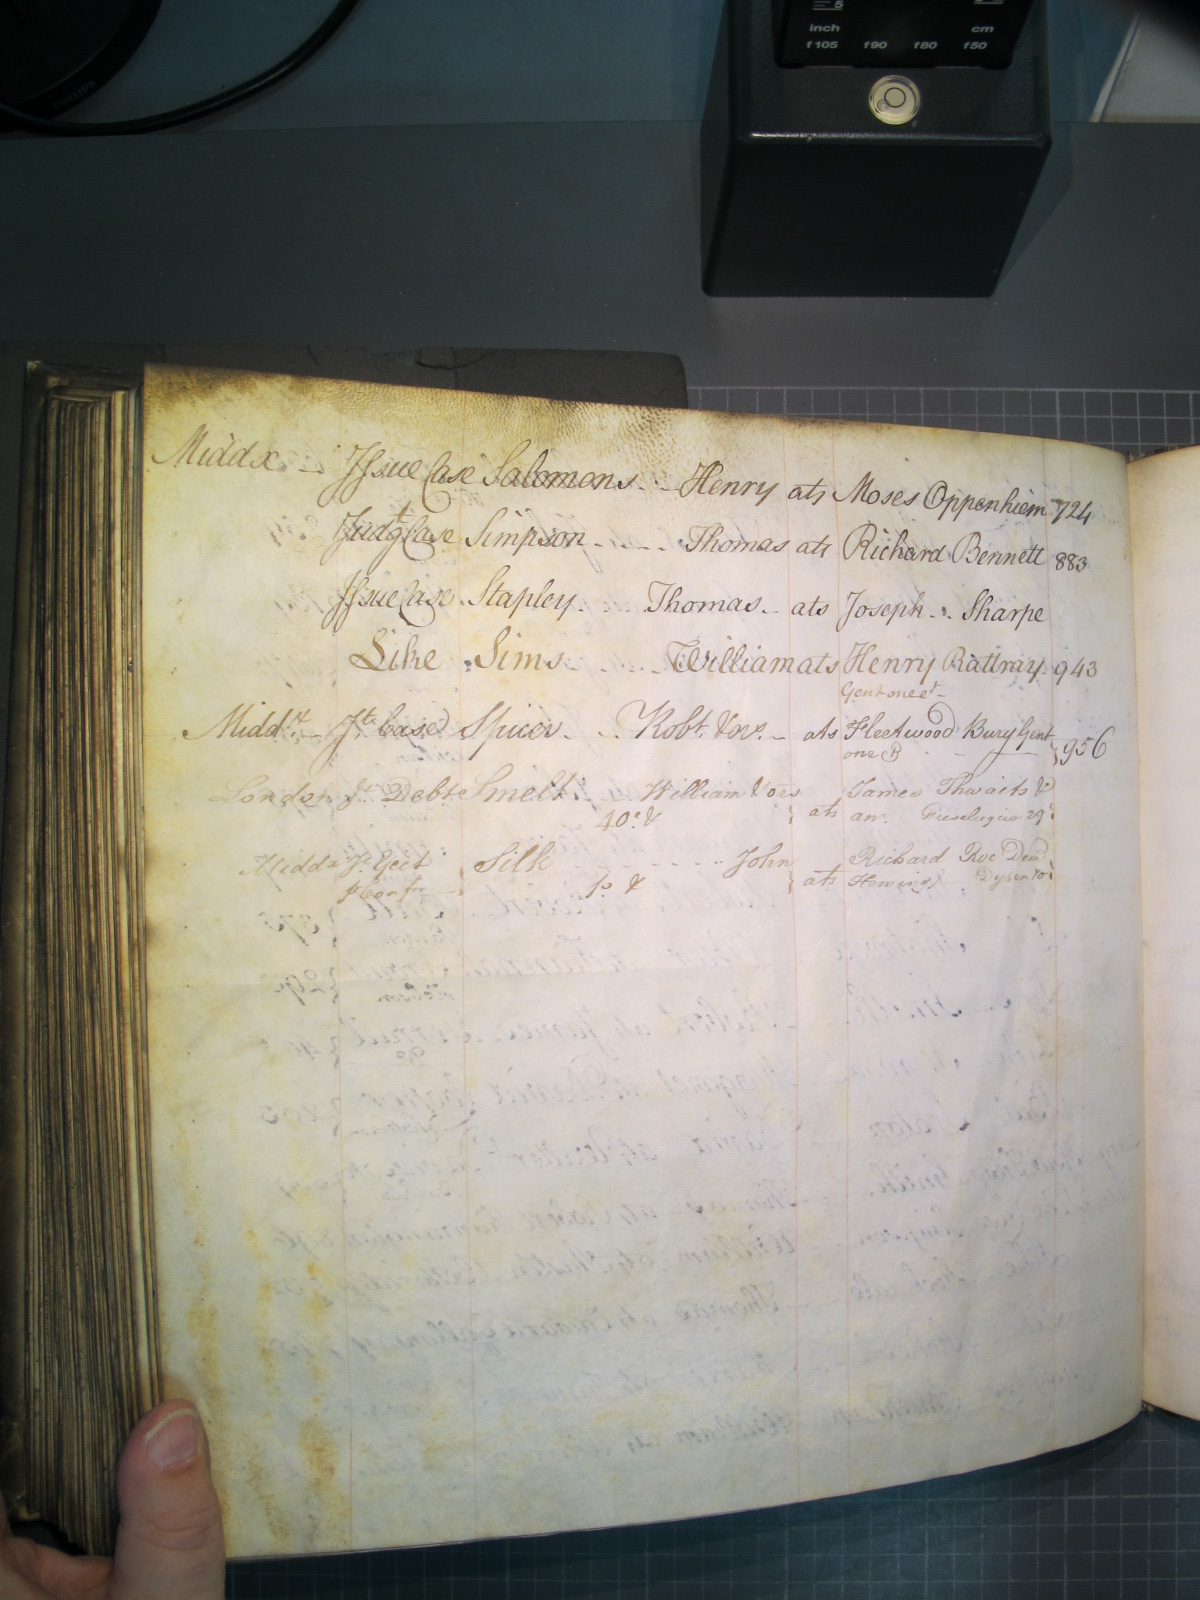 5
inch cm
f105 f90 f80 f50
PHILIPS
Middx - Issue Case Salomons - Henry ats Moses Oppenhiem 724
Judgt Case Simpson - - - Thomas ats Richard Bennett 883
Issue Case Stapley - Thomas - ats Joseph - Sharpe
Like Sims - - William ats Henry Rattray 943
Gent one et -
Middx - Jt Case Spicer - - Robt Vox. - ats Fleetwood Bury Gent
one &c - 956
London Jt Debt Smelt William Vors James Thwaits &
40s & ats an. 29
Middx Jt Ject Silk - - John Richard Roe Dem
p Confn 1s & ats Heming Dyson 10